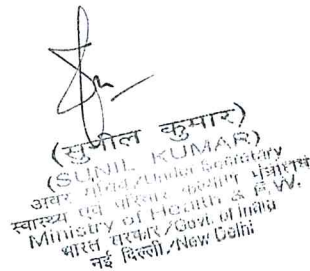 (सुनील कुमार)
(SUNIL KUMAR)
अवर सचिव/Under Secretary
स्वास्थ्य एवं परिवार कल्याण मंत्रालय
Ministry of Health & F.W.
भारत सरकार/Govt. of India
नई दिल्ली/New Delhi